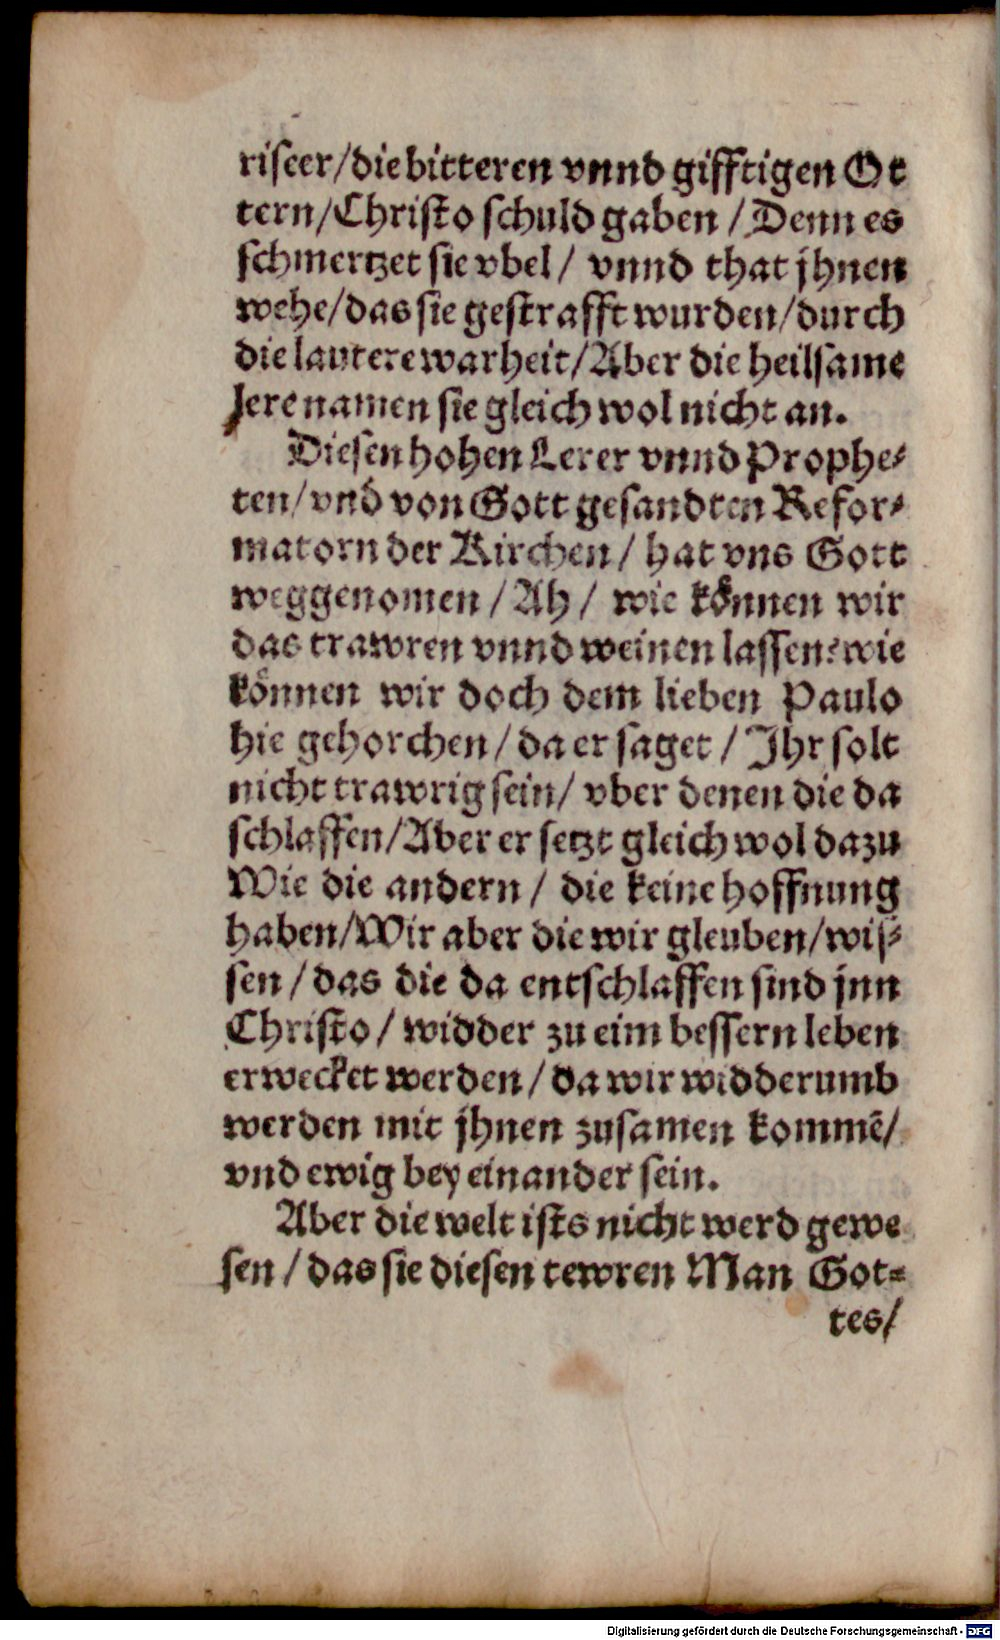 riseer/die bitteren vnnd gifftigen Ot
tern/Christo schuld gaben / Denn es
schmertzet sie vbel / vnnd that jhnen
wehe/das sie gestrafft wurden/durch
die lautere warheit/Aber die heilsame
lere namen sie gleich wol nicht an.
Diesen hohen Lerer vnnd Prophe-
ten/vnd von Gott gesandten Refor-
matorn der Kirchen / hat vns Gott
weggenomen / Ah / wie koͤnnen wir
das trawren vnnd weinen lassen? wie
koͤnnen wir doch dem lieben Paulo
hie gehorchen / da er saget / Jhr solt
nicht trawrig sein/ vber denen die da
schlaffen/Aber er setzt gleich wol dazu
Wie die andern / die keine hoffnung
haben/Wir aber die wir gleuben/wis-
sen / das die da entschlaffen sind jnn
Christo / widder zu eim bessern leben
erwecket werden / da wir widderumb
werden mit jhnen zusamen kommẽ/
vnd ewig bey einander sein.
Aber die welt ists nicht werd gewe
sen / das sie diesen tewren Man Got-
tes/
Digitalisierung gefördert durch die Deutsche Forschungsgemeinschaft - DFG